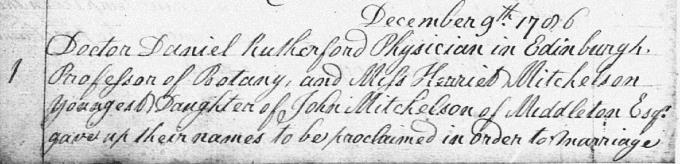 December 9th. 1786
1 Doctor Daniel Rutherford Physician in Edinburgh.
Professor of Botany, and Miss Harriet Mitchelson
Youngest Daughter of John Mitchelson of Middleton Esqr.
gave up their names to be proclaimed in order to marriage